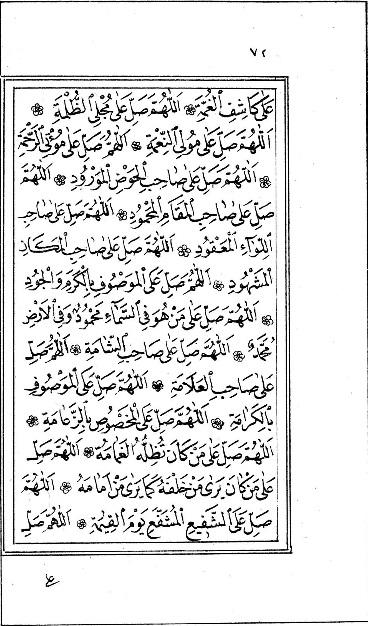 ٧٢
عَلٰى كَاشِفِ الْغُمَّةِ ۞ اَللّٰهُمَّ صَلِّ عَلٰى مُجْلِى الظُّلْمَةِ ۞
اَللّٰهُمَّ صَلِّ عَلٰى مُوْلِى النِّعْمَةِ ۞ اَللّٰهُمَّ صَلِّ عَلٰى مُؤْتِى الرَّحْمَةِ
۞ اَللّٰهُمَّ صَلِّ عَلٰى صَاحِبِ الْحَوْضِ الْمَوْرُوْدِ ۞ اَللّٰهُمَّ
صَلِّ عَلٰى صَاحِبِ الْمَقَامِ الْمَحْمُوْدِ ۞ اَللّٰهُمَّ صَلِّ عَلٰى صَاحِبِ
اللِّوَاءِ الْمَعْقُوْدِ ۞ اَللّٰهُمَّ صَلِّ عَلٰى صَاحِبِ الْمَكَانِ
الْمَشْهُوْدِ ۞ اَللّٰهُمَّ صَلِّ عَلَى الْمَوْصُوْفِ بِالْكَرَمِ وَالْجُوْدِ
۞ اَللّٰهُمَّ صَلِّ عَلٰى مَنْ هُوَ فِى السَّمَاءِ مَحْمُوْدٌ وَفِى الْاَرْضِ
مُحَمَّدٌ ۞ اَللّٰهُمَّ صَلِّ عَلٰى صَاحِبِ الشَّامَةِ ۞ اَللّٰهُمَّ صَلِّ
عَلٰى صَاحِبِ الْعَلَامَةِ ۞ اَللّٰهُمَّ صَلِّ عَلَى الْمَوْصُوْفِ
بِالْكَرَامَةِ ۞ اَللّٰهُمَّ صَلِّ عَلَى الْمَخْصُوْصِ بِالزَّعَامَةِ ۞
اَللّٰهُمَّ صَلِّ عَلٰى مَنْ كَانَ تُظِلُّهُ الْغَمَامَةُ ۞ اَللّٰهُمَّ صَلِّ
عَلٰى مَنْ كَانَ يَرٰى مَنْ خَلْفَهُ كَمَا يَرٰى مَنْ اَمَامَهُ ۞ اَللّٰهُمَّ
صَلِّ عَلَى الشَّفِيْعِ الْمُشَفَّعِ يَوْمَ الْقِيٰمَةِ ۞ اَللّٰهُمَّ صَلِّ